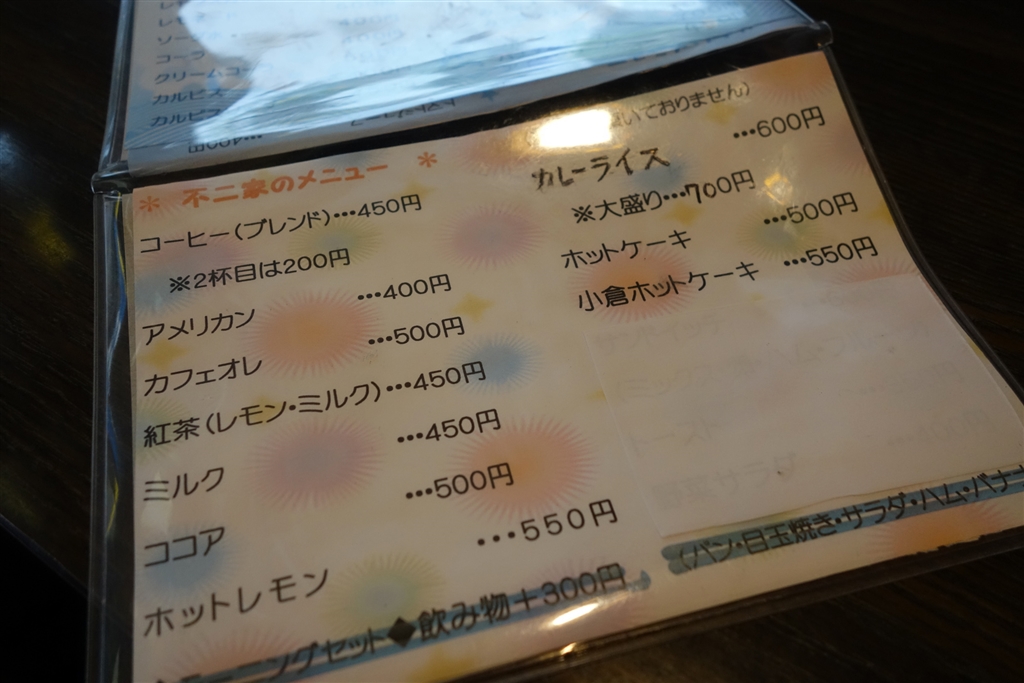 ソー
コーラ
クリームコー
カルピス
カルピ
…400円
＊ 不二家のメニュー ＊
コーヒー(ブレンド)…450円
※2杯目は200円
アメリカン …400円
カフェオレ …500円
紅茶(レモン・ミルク)…450円
ミルク …450円
ココア …500円
ホットレモン …550円
ーニングセット◆飲み物＋300円
いておりません)
カレーライス …600円
※大盛り…700円
ホットケーキ …500円
小倉ホットケーキ …550円
トースト
野菜サラダ
(パン・目玉焼き・サラダ・ハム・バナナ